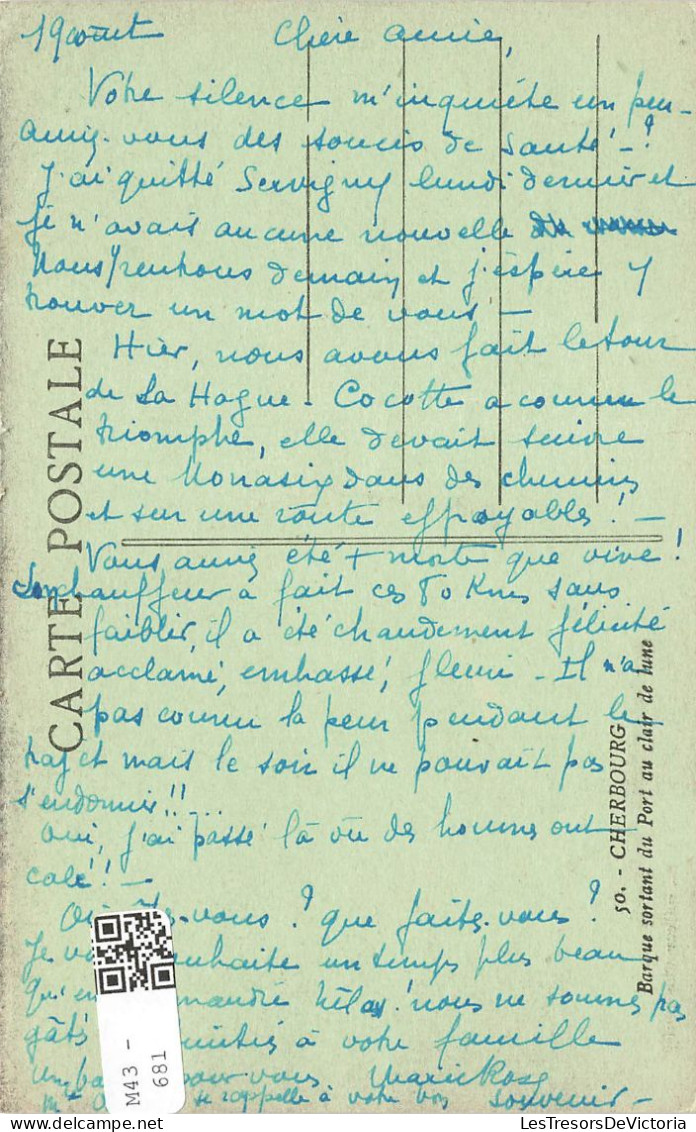 19 août Chère amie,
Votre silence m'inquiète un peu -
auriez-vous des soucis de santé - ?
J'ai quitté Servigny lundi dernier et
je n'avais aucune nouvelle
Nous rentrons demain et j'espère y
trouver un mot de vous -
Hier, nous avons fait le tour
de La Hague - Cocotte a connu le
triomphe, elle devait suivre
une Monasix dans des chemins
et sur une route effroyables ! -
Vous auriez été + morte que vive !
Son chauffeur a fait ces 80 Kms sans
faiblir, il a été chaudement félicité
acclamé, embrassé, fleuri - Il n'a
pas connu la peur pendant le
trajet mais le soir il ne pouvait pas
s'endormir !! ...
Oui, j'ai passé là où des hommes ont
calé !! -
Où êtes-vous ? que faites-vous ?
Je vous souhaite un temps plus beau
qu'en Normandie hélas ! nous ne sommes pas
gâtés à votre famille
un pour vous Marie Rose
se rappelle à votre bon souvenir -
CARTE POSTALE
50. - CHERBOURG
Barque sortant du Port au clair de lune
M43 -
681
LesTresorsDeVero.com